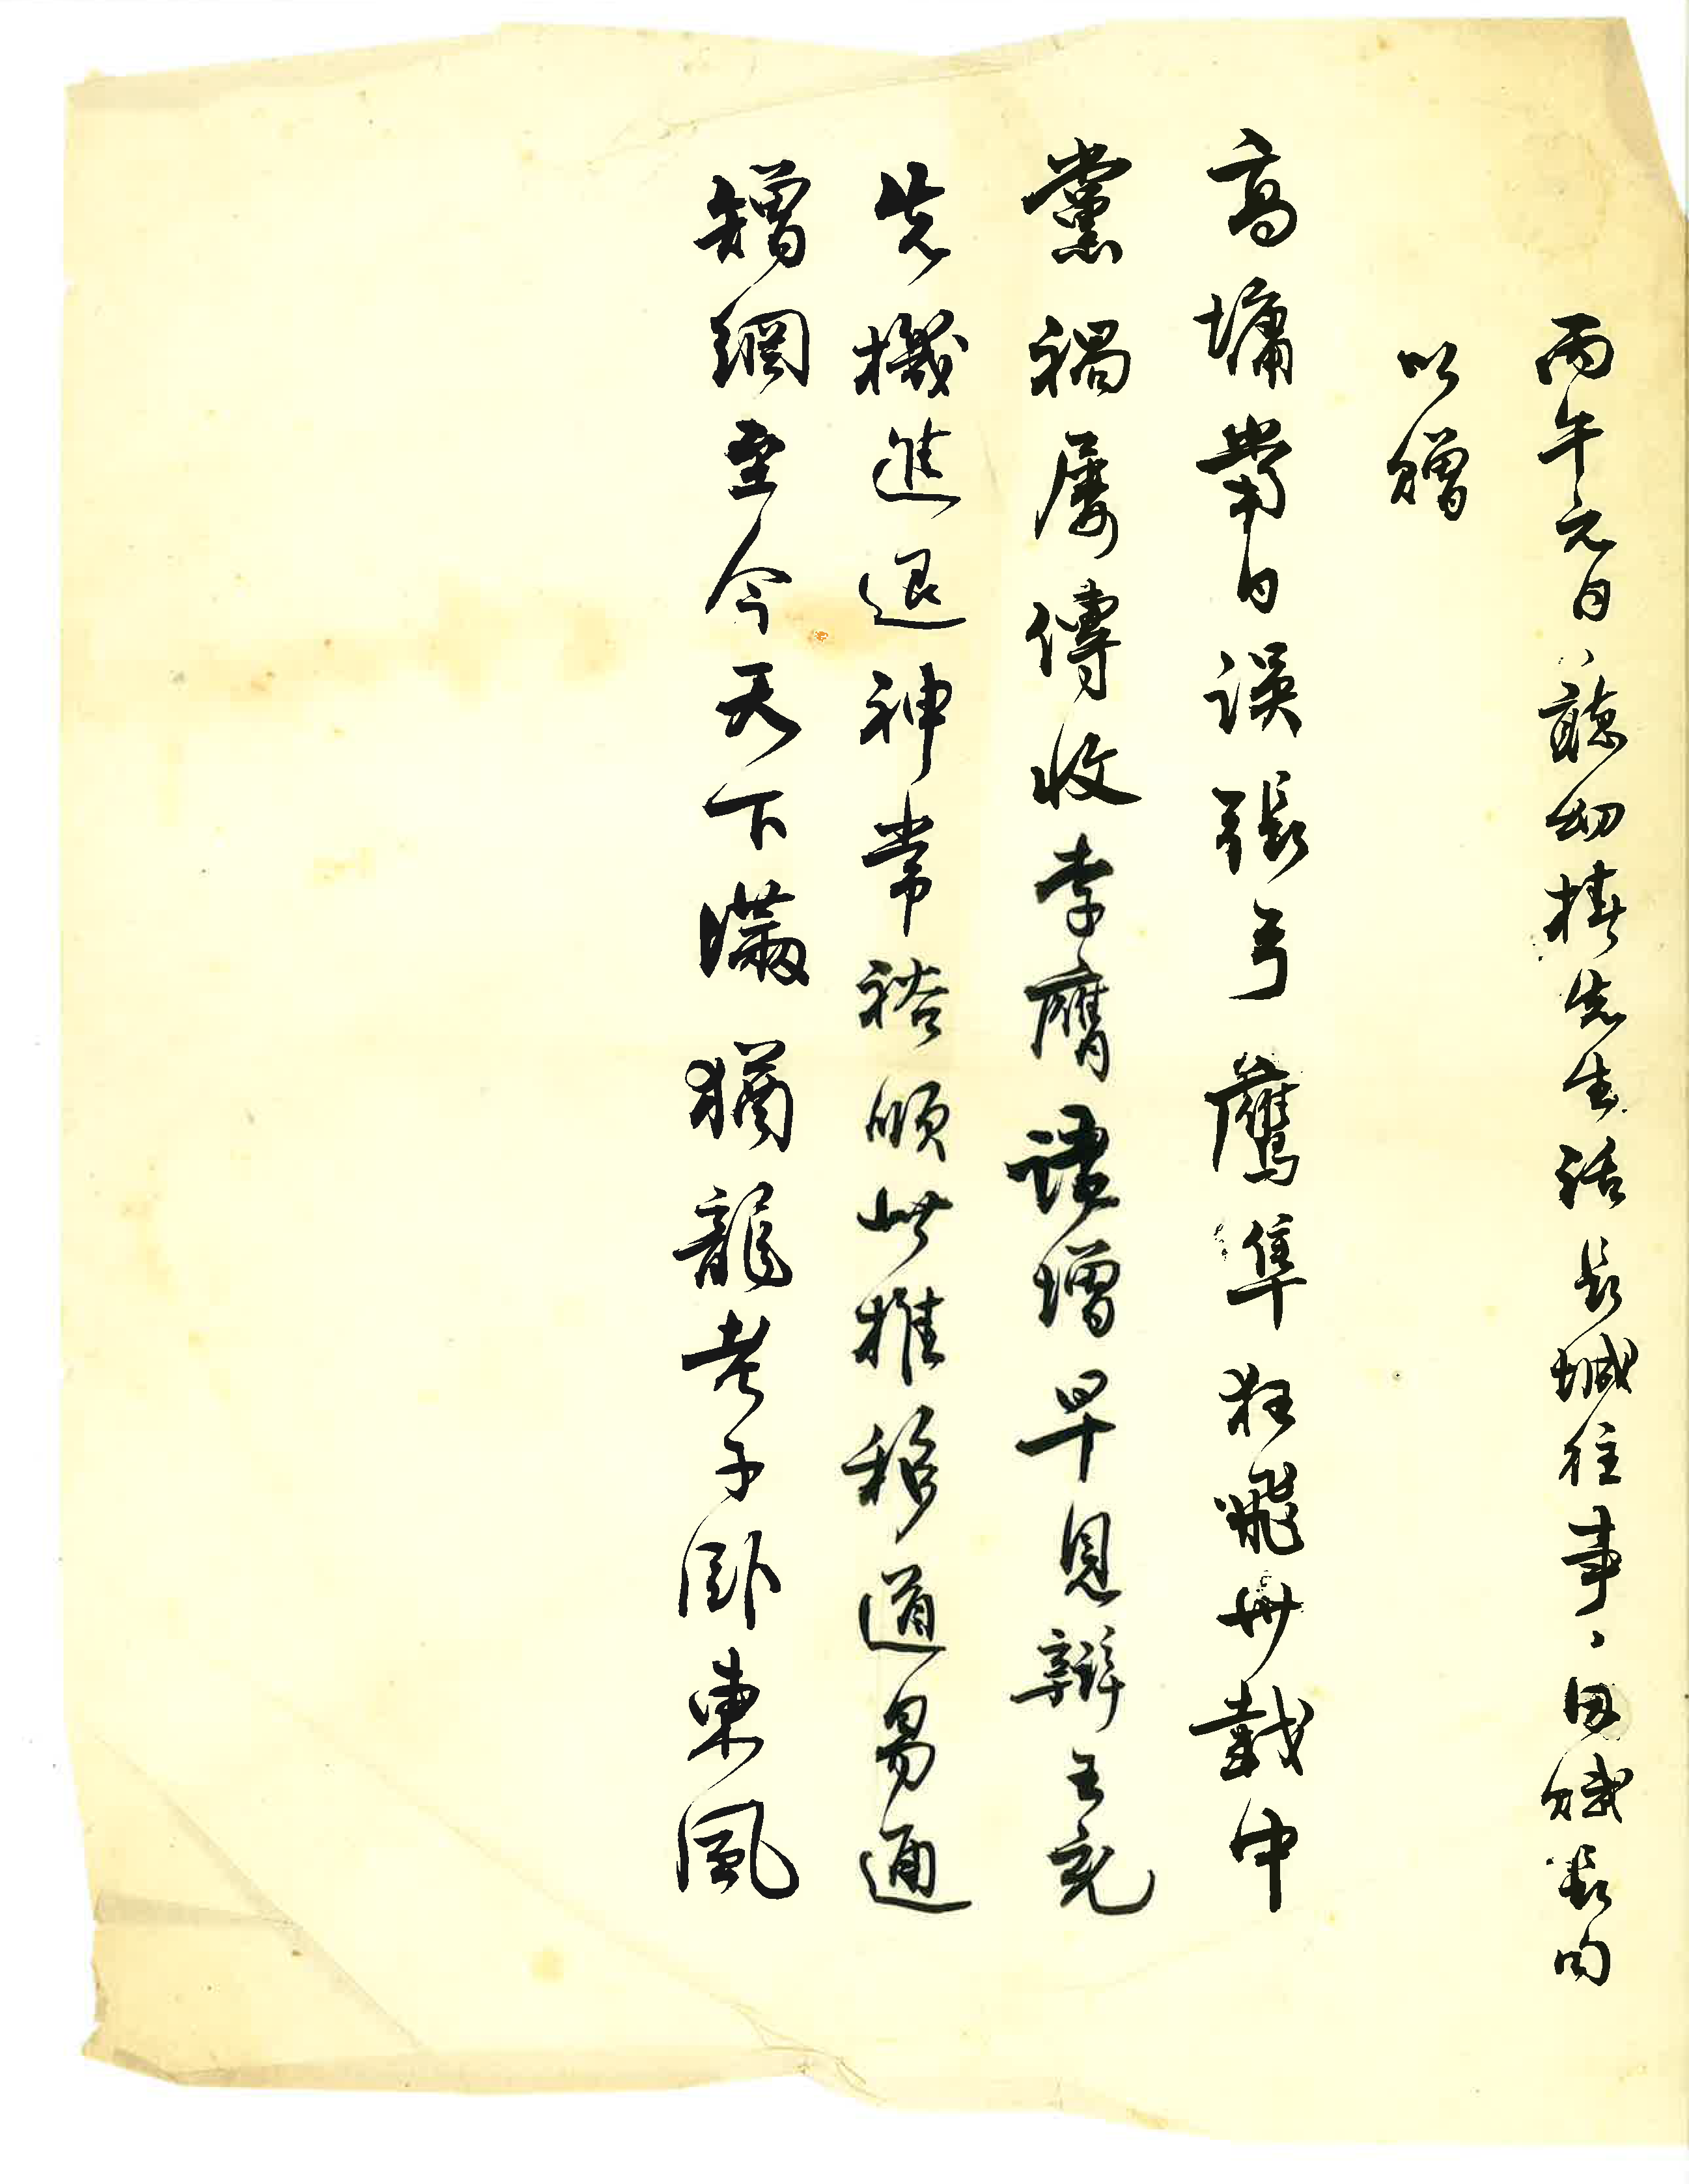 丙午元日、聽幼椿先生話長城往事、因賦長句
以贈
高墉當日誤張弓鷹隼狂飛卅載中
黨禍屢傳收李膺謗增早見辯王充
先機進退神常裕順世推移道易通
矰網至今天下滿猶龍老子臥東風